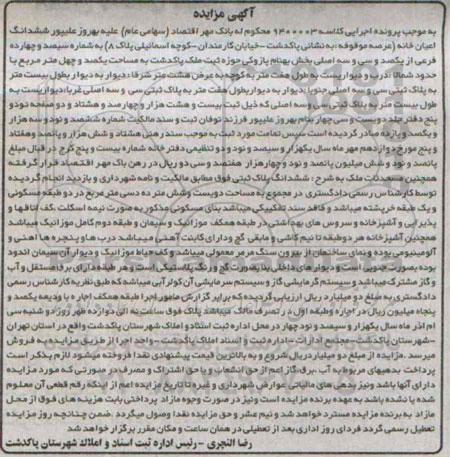 آگهی مزایده
به موجب پرونده اجرایی کلاسه ۹۴۰۰۰۰۳ محکوم له بانک مهر اقتصاد (سهامی عام) علیه بهروز علیپور ششدانگ
اعیان خانه (عرصه موقوفه) به نشانی پاکدشت - خیابان کارمندان - کوچه اسماعیلی پلاک ۸) به شماره سیصد و چهارده
فرعی از یکصد و سی و سه اصلی بخش بهنام پازوکی حوزه ثبت ملک پاکدشت به مساحت یکصد و چهل متر مربع با
حدود شمالا: درب و دیواریست به طول هفت متر به کوچه به عرض هشت متر شرقا: دیوار به دیوار بطول بیست متر
به پلاک ثبتی سی و سه اصلی جنوبا: دیوار به دیوار بطول هفت متر به پلاک ثبتی سی و سه اصلی غربا: دیواریست به
طول بیست متر به پلاک ثبتی سی و سه اصلی که ذیل ثبت بیست و هشت هزار و چهارصد و هشتاد و دو صفحه نود و
پنج دفتر جلد دویست و سی چهار بنام بهروز علیپور فرزند توفان ثبت و سند مالکیت شماره ششصد و نود و سه هزار
و یکصد و یازده صادر گردیده است سپس تمامت مورد ثبت به موجب سند رهنی هشتاد و شش هزار و پانصد وهفتاد
و پنج مورخ دوازدهم مهر ماه سال یکهزار و سیصد و نود و دو تنظیمی دفترخانه شماره بیست و پنج کرج در قبال مبلغ
پانصد و نود و شش میلیون پانصد و نود و چهارهزار هفتصد و سی دو ریال در رهن باک مهر اقتصاد قرار گرفته
همچنین مستحدثات ملک به شرح: ششدانگ پلاک ثبتی فوق مطابق مالکیت و نامه شهرداری و بازدید انجام گردیده
توسط کارشناس رسمی دادگستری در مجموع به مساحت دویست وشش متر ده دسی متر مربع در دو طبقه مسکونی
و یک طبقه خرپشته میباشد و فاقد سند تفکیکی میباشد بنای مسکونی مذکور به صورت نیمه اسکلت ،کف اتاقها و
پذیرایی و آشپزخانه و سروس های بهداشتی در طبقه همکف موزائیک و سیمان و طبقه دوم کامل موزائیک میباشد
همچنین آشپزخانه هر دوطبقه تا نیم کاشی و مابقی گچ و دارای کابنت آهنی میباشد درب ها و پنجره ها آهنی و
آلومینیومی بوده و نمای ساختمان از بیرون سنگ مرمر معمولی میباشد و کف حیاط موزائیک و دیوار آن سیمان اندود
بوده بصورت جنوبی است و دیوار های داخلی بنا بصورت گچ و رنگ پلاستیکی است و هر طبقه دارای برق مستقل و آب
و گاز مشترک میباشد و سیستم گرمایشی گاز و سیستم سرمایشی آن کولر آبی میباشد که طبق نظریه کارشناس رسمی
دادگستری به مبلغ دو میلیارد ریال ارزیابی گردیده که برابر گزارش مامور اجرا طبقه همکف اجاره با ودیعه یکصد و
پنجاه میلیون ریال در اجاره و طبقه اول در تصرف مالک میباشد پلاک فوق ساعت نه الی دوازده ظهر روز دو شنبه سی
ام اذر ماه سال یکهزار و سیصد و نود چهار در محل اداره ثبت اسناد و املاک شهرستان پاکدشت واقع در استان تهران
-شهرستان پاکدشت- مجتمع ادارات - اداره ثبت اسناد املاک پاکدشت - واحد اجرا از طریق مزایده به فروش
میرسد .مزایده از مبلغ دو میلیارد ریال شروع و به بالاترین قیمت پیشنهادی نقدا فروخته میشود لازم بذکر است
پرداخت بدهیهای مربوط به آب ،برق،گاز اعم از حق انشعاب و یا حق اشتراک و مصرف در صورتی که مورد مزایده
دارای آنها باشد ونیز بدهی های مالیاتی عوارض شهرداری و غیره تا تاریخ مزایده اعم از اینکه رقم قطعی آن معلوم
شده یا نشده باشد به عهده برنده مزایده است ونیز در صورت وجوه مازاد پرداختی بابت هزینه های فوق از محل
مازاد به برنده مزایده مسترد خواهد شد و نیم عشر و حق مزایده نقدا وصول میگردد .ضمن چنانچه روز مزایده
تعطیل رسمی گردد فردای روز اداری بعد از تعطیلی در همان ساعت و مکان مقرر برگزار خواهد شد
رضا النجری - رئیس اداره ثبت اسناد و املاک شهرستان پاکدشت